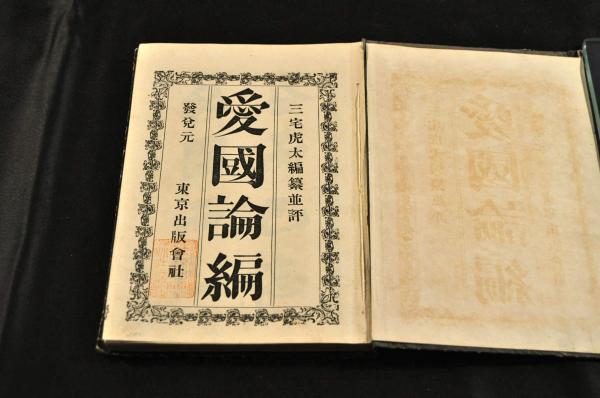 三宅虎太編纂並評
愛國論編
發兌元 東京出版會社